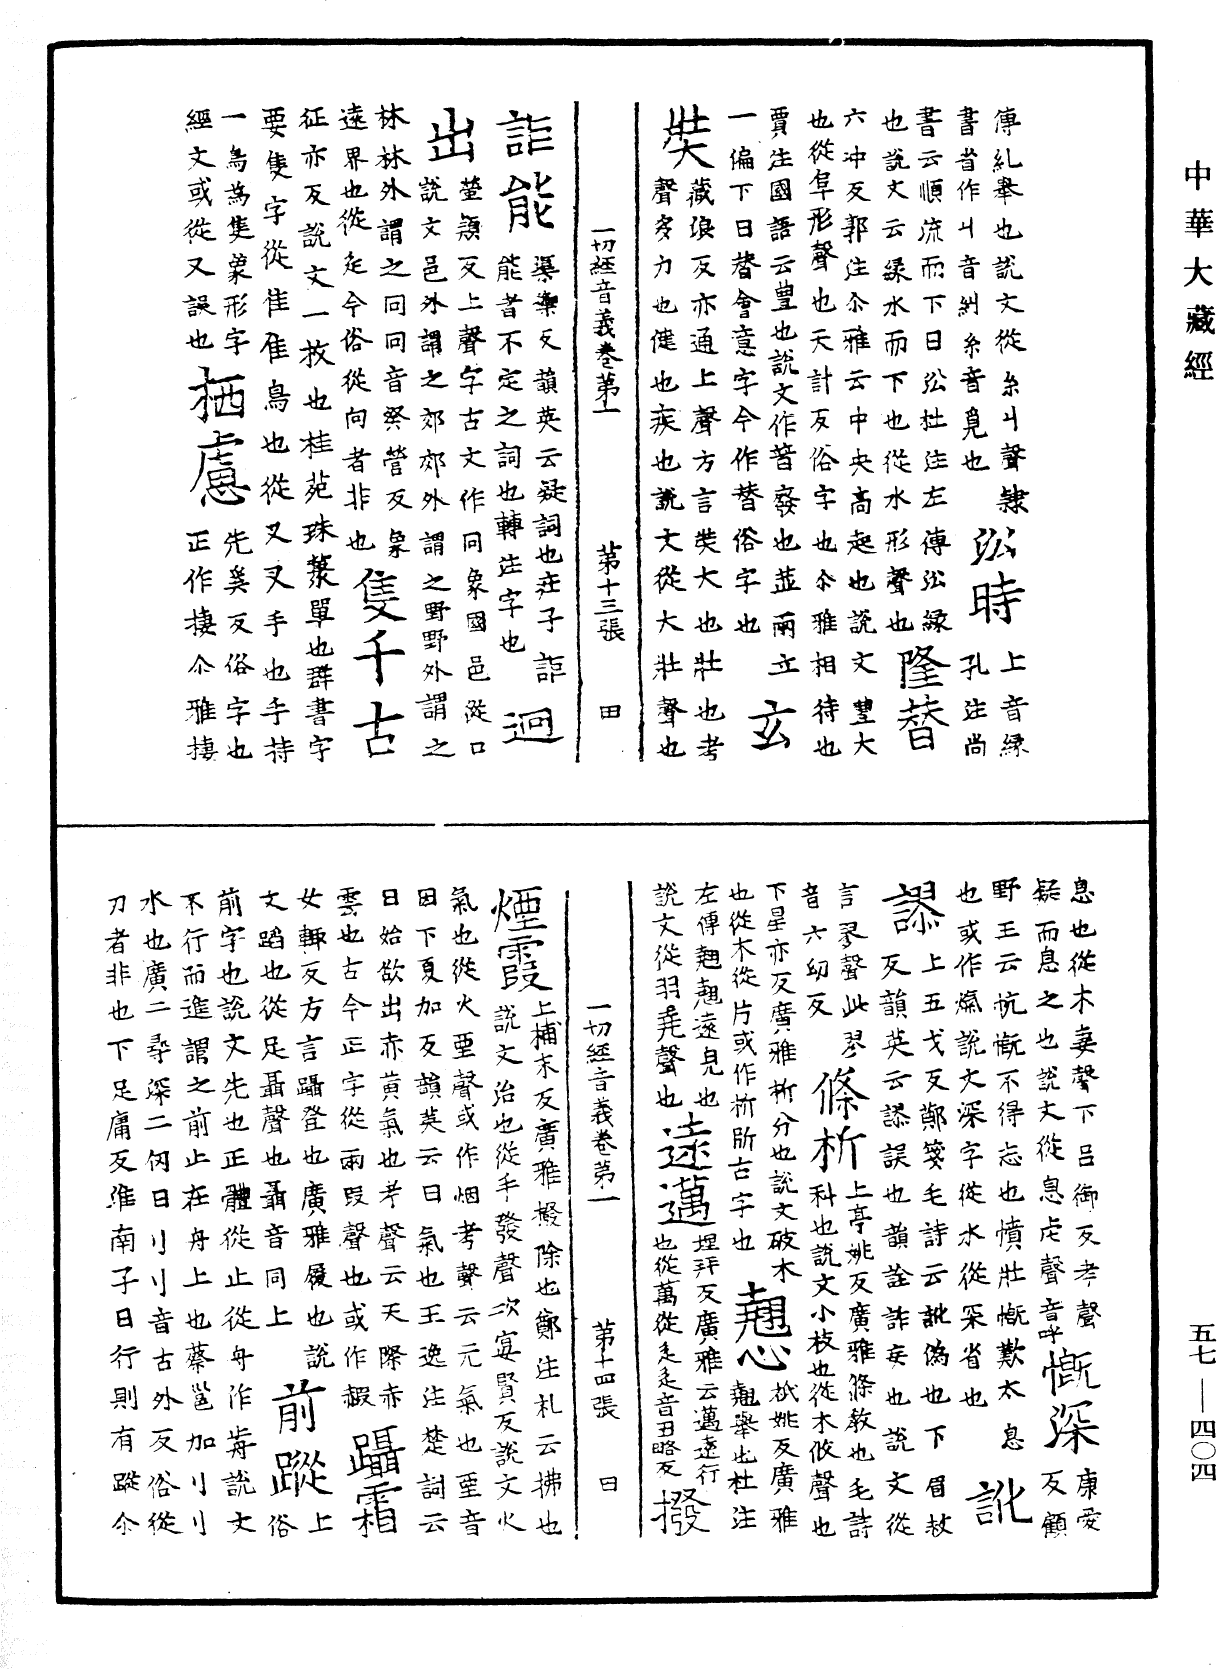 中華大藏經
傳糺舉也說文從糸丩聲隷
書省作丩音糾糸音覓也
㳂時
上音緣
孔注尚
書云順流而下曰㳂杜注左傳㳂緣
也說文云緣水而下也從水形聲也
隆替
六冲反郭注尒雅云中央高起也說文豐大
也從阜形聲也天計反俗字也尒雅相待也
賈注國語云豊也說文作暜廢也並兩立
一偏下日暜會意字今作替俗字也
玄
奘
藏浪反亦通上聲方言奘大也壯也考
聲多力也健也疾也說文從大壯聲也
一切經音義卷第一
第十三張
田
詎能
渠禦反韻英云疑詞也莊子詎
能者不定之詞也轉注字也
迥
出
螢潁反上聲字古文作冋象國邑從口
說文邑外謂之郊郊外謂之野野外謂之
林林外謂之冋冋音癸營反象
遠界也從辵今俗從向者非也
隻千古
征亦反說文一枚也桂苑珠藂單也群書字
要隻字從隹隹鳥也從又又手也手持
一鳥為隻象形字
經文或從又誤也
栖慮
先奚反俗字也
正作棲尒雅棲
息也從木妻聲下呂御反考聲
疑而息之也說文從息虍聲音呼
慨深
康愛
反顧
野王云忼慨不得志也憤壯慨歎太息
也或作㵣說文深字從水從罙省也
訛
謬
上五戈反鄭箋毛詩云訛偽也下眉救
反韻英云謬誤也韻詮詐妄也說文從
言翏聲此翏
音六幼反
條析
上亭姚反廣雅條教也毛詩
科也說文小枝也從木攸聲也
下星亦反廣雅析分也說文破木
也從木從片或作㭊斦古字也
翹心
祇姚反廣雅
翹舉也杜注
左傳翹翹遠見也
說文從羽堯聲也
遠邁
埋拜反廣雅云邁遠行
也從萬從辵辵音丑略反
撥
一切經音義卷第一
第十四張
田
煙霞
上補末反廣雅撥除也鄭注札云拂也
說文治也從手發聲次宴賢反說文火
氣也從火垔聲或作烟考聲云元氣也垔音
因下夏加反韻英云日氣也王逸注楚詞云
日始欲出赤黄氣也考聲云天際赤
雲也古今正字從雨叚聲也或作赮
躡霜
女輒反方言躡登也廣雅履也說
文蹈也從足聶聲也聶音同上
前蹤
上
俗
前字也說文先也正體從止從舟作歬說文
不行而進謂之前止在舟上也蔡邕加刂刂
水也廣二尋深二仞曰刂刂音古外反俗從
刀者非也下足庸反淮南子曰行則有蹤尒
五七—四〇四